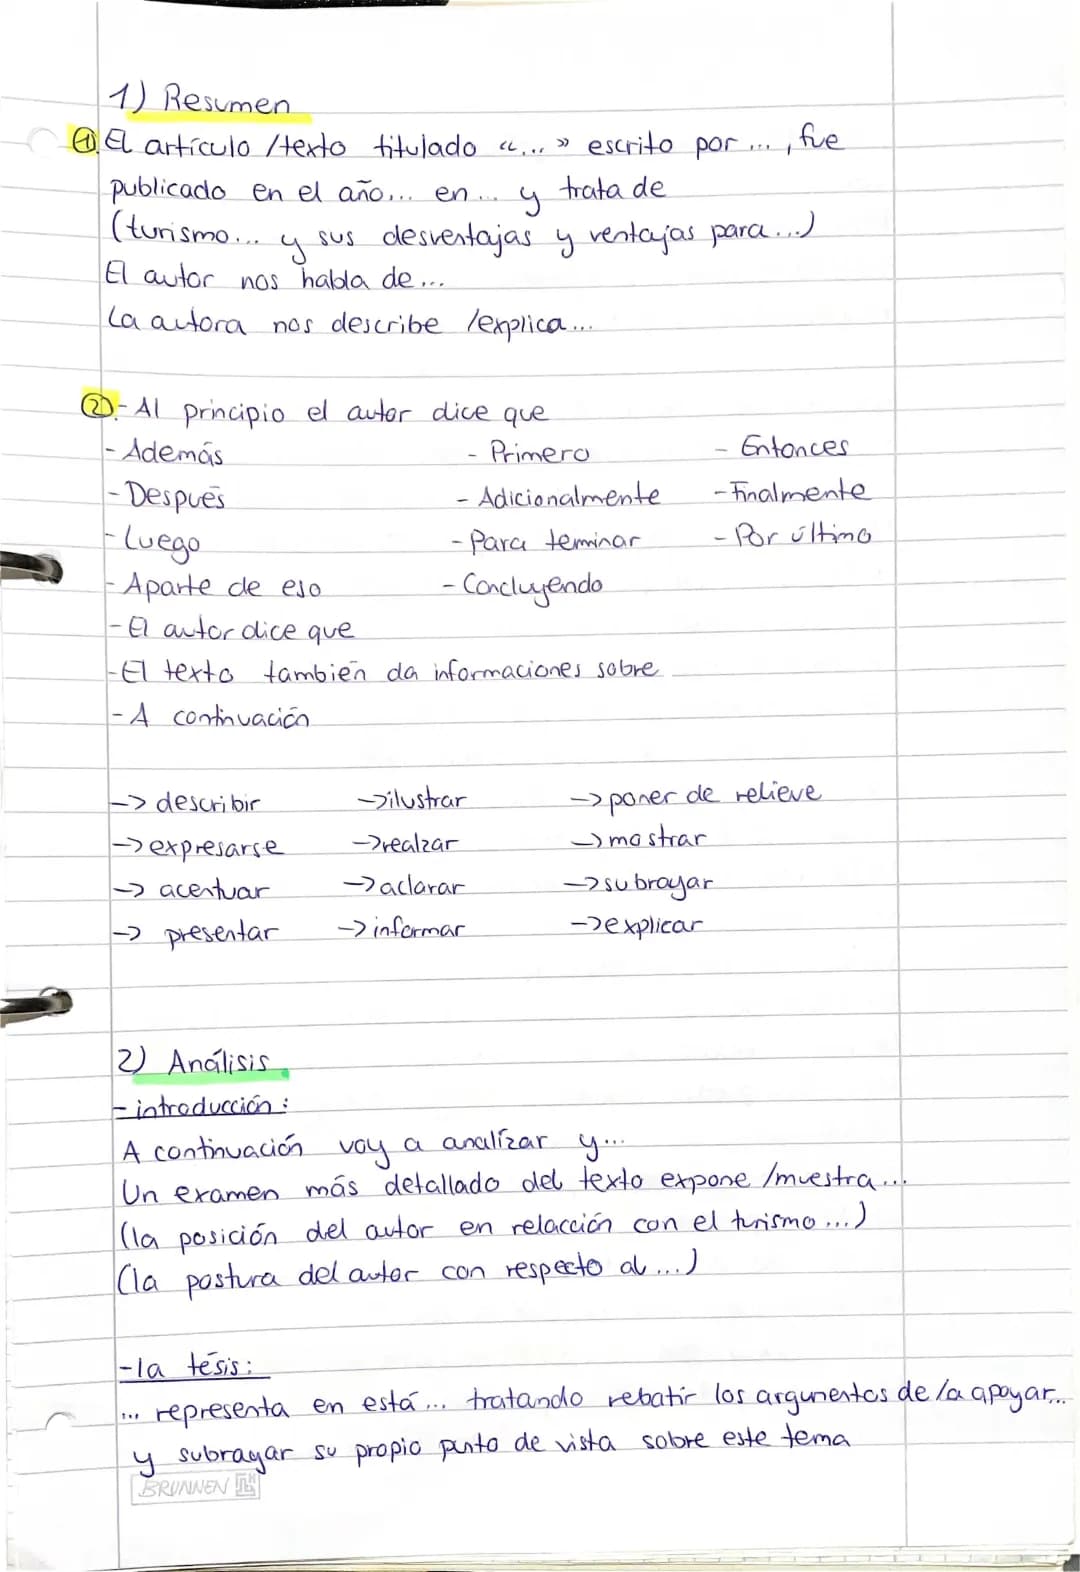 1) Resumen
① El artículo /texto titulado «...» escrito por ..., fue
publicado en el año... en... y trata de
(turismo... y sus desventajas y ventajas para...)
El autor nos habla de...
La autora nos describe /explica...
② - Al principio el autor dice que
- Además - Primero - Entonces
- Después - Adicionalmente - Finalmente
- Luego - Para terminar - Por último
- Aparte de eso - Concluyendo
- El autor dice que
- El texto también da informaciones sobre
- A continuación
-> describir -> ilustrar -> poner de relieve
-> expresarse -> realzar -> mostrar
-> acentuar -> aclarar -> subrayar
-> presentar -> informar -> explicar
2) Análisis
- introducción:
A continuación voy a analízar y...
Un examen más detallado del texto expone /muestra...
(la posición del autor en relacción con el turismo...)
(la postura del autor con respecto al...)
- la tésis:
... representa en está... tratando rebatir los argumentos de /a apoyar...
y subrayar su propio punto de vista sobre este tema
BRUNNEN